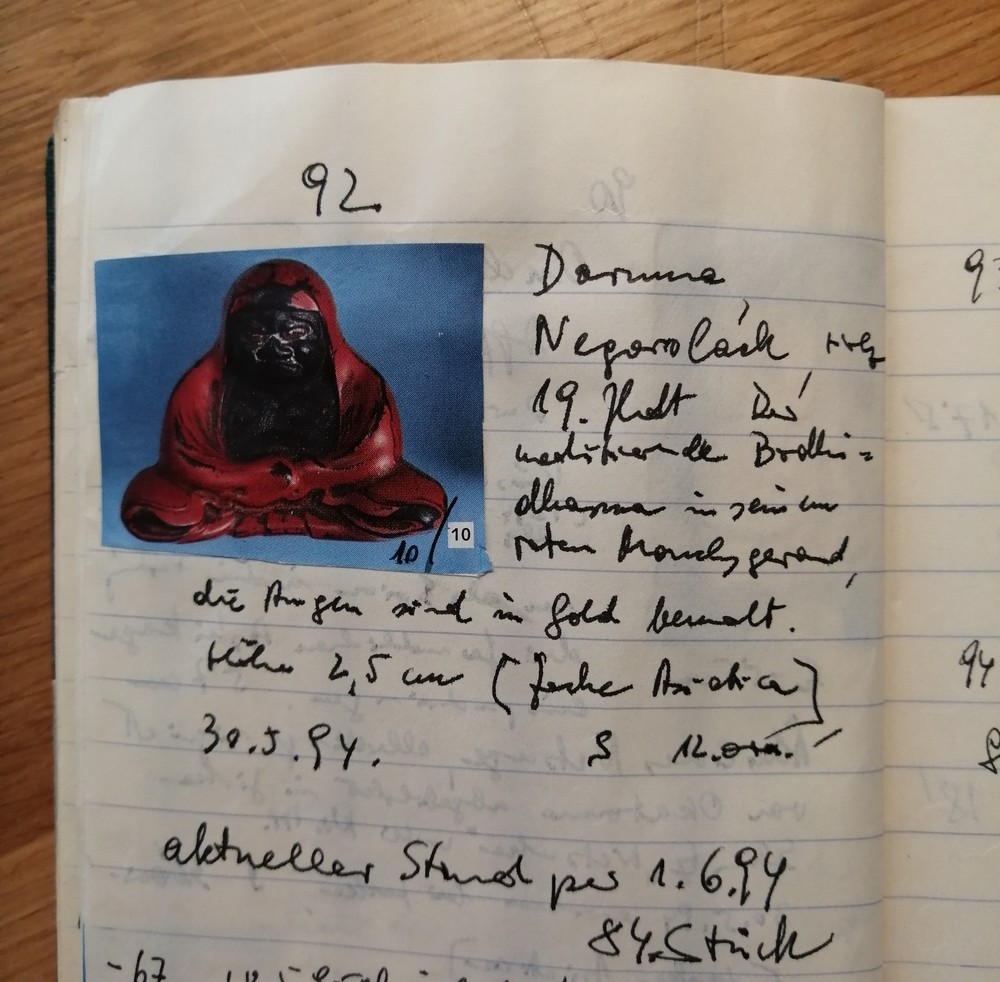 92.
Daruma
Negorolack, Holz
19. Jhdt Der
meditierende Bodhi=
dharma in seinem
roten Mönchsgewand,
10/ 10
die Augen sind in Gold bemalt.
Höhe 2,5 cm (Jecke Asiatica)
30.5.94. S 12.000.-
aktueller Stand per 1.6.94
84 Stück
-67
93
94
8